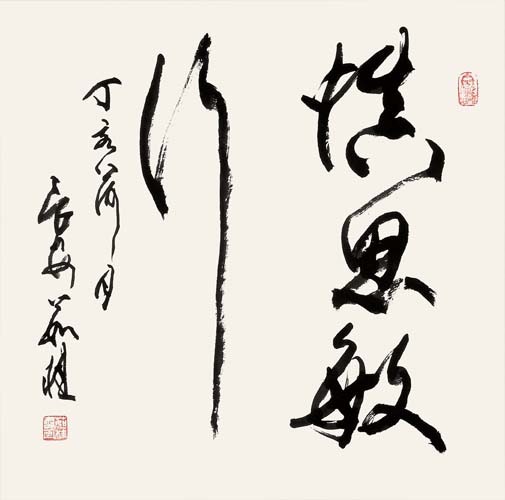 慎思敏
行
丁亥荷月
长安茹桂